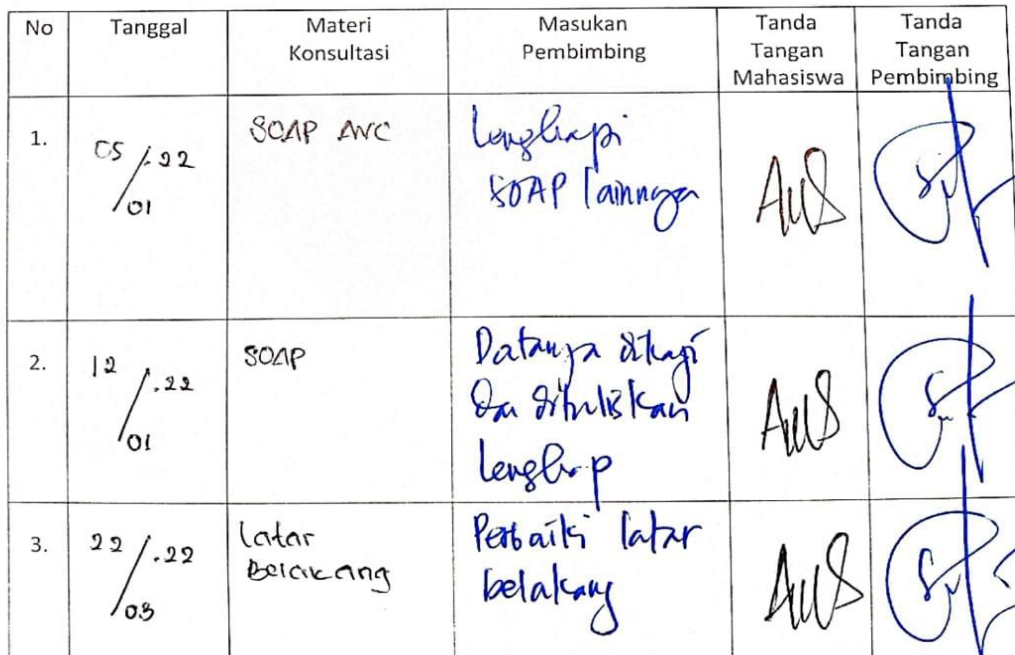 No Tanggal Materi Konsultasi Masukan Pembimbing Tanda Tangan Mahasiswa Tanda Tangan Pembimbing
1. 05/01.22 SOAP ANC Lengkapi
SOAP lainnya
2. 12/01.22 SOAP Datanya dikaji
dan dituliskan
lengkap
3. 22/03.22 Latar
Belakang Perbaiki latar
belakang